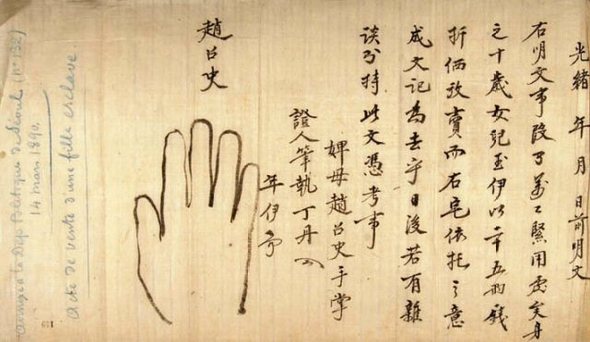 光緒 年 月 日前明文
右明文事段子萬〻緊用處矣身
之十歲女兒玉伊以二十五兩錢
折価放賣而右宅依托之意
成文記為去乎日後若有雜
談 持此文憑考事
婢母趙召史手掌
證人筆執丁丹
年伊
趙召史
annexe à la Dép. Politique de Séoul (nº 132)
14 mars 1890.
Acte de vente d'une fille esclave.